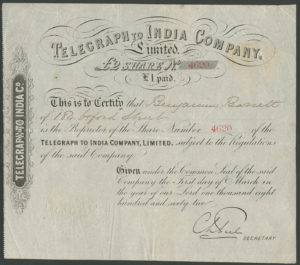 TELEGRAPH TO INDIA COMPANY.
Limited.
£2 SHARE No 4620
£1 paid.
This is to Certify that Benjamin
of 18 Oxford Street
is the Proprietor of the Share Number 4620 of the
TELEGRAPH TO INDIA COMPANY, LIMITED, subject to the Regulations
of the said Company.
Given under the Common Seal of the said
Company the First day of March in
the year of our Lord one thousand eight
hundred and sixty two
SECRETARY.
TELEGRAPH TO INDIA Co